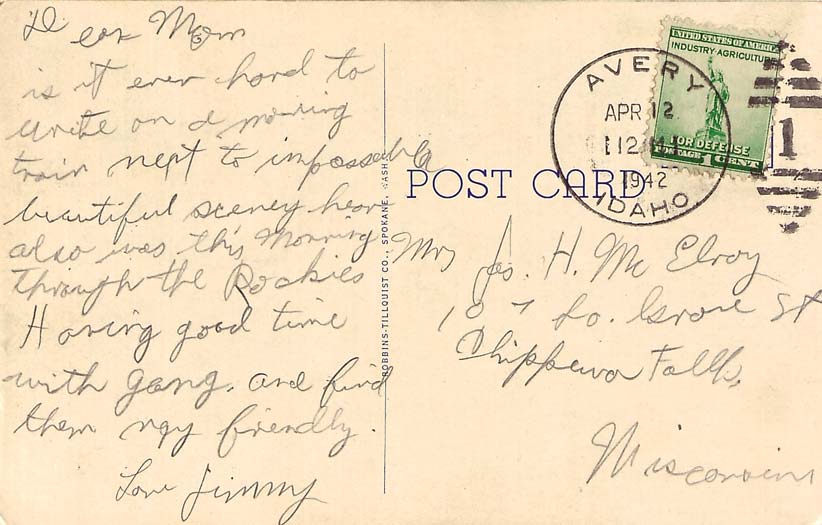 Dear Mom
is it ever hard to
write on a moving
train next to impossible
beautiful sceney hear
also was this Morning
through the Rockies
Having good time
with gang. and find
them friendly.
Love Jimmy
ROBBINS-TILLQUIST CO., SPOKANE, WASH.
POST CARD
AVERY
APR 12
1942
IDAHO
UNITED STATES OF AMERICA
INDUSTRY AGRICULTURE
FOR DEFENSE
POSTAGE 1 CENT
1
Mrs Jos. H. Mc Elroy
107 So. Grove St
Chippewa Falls,
Wisconsin